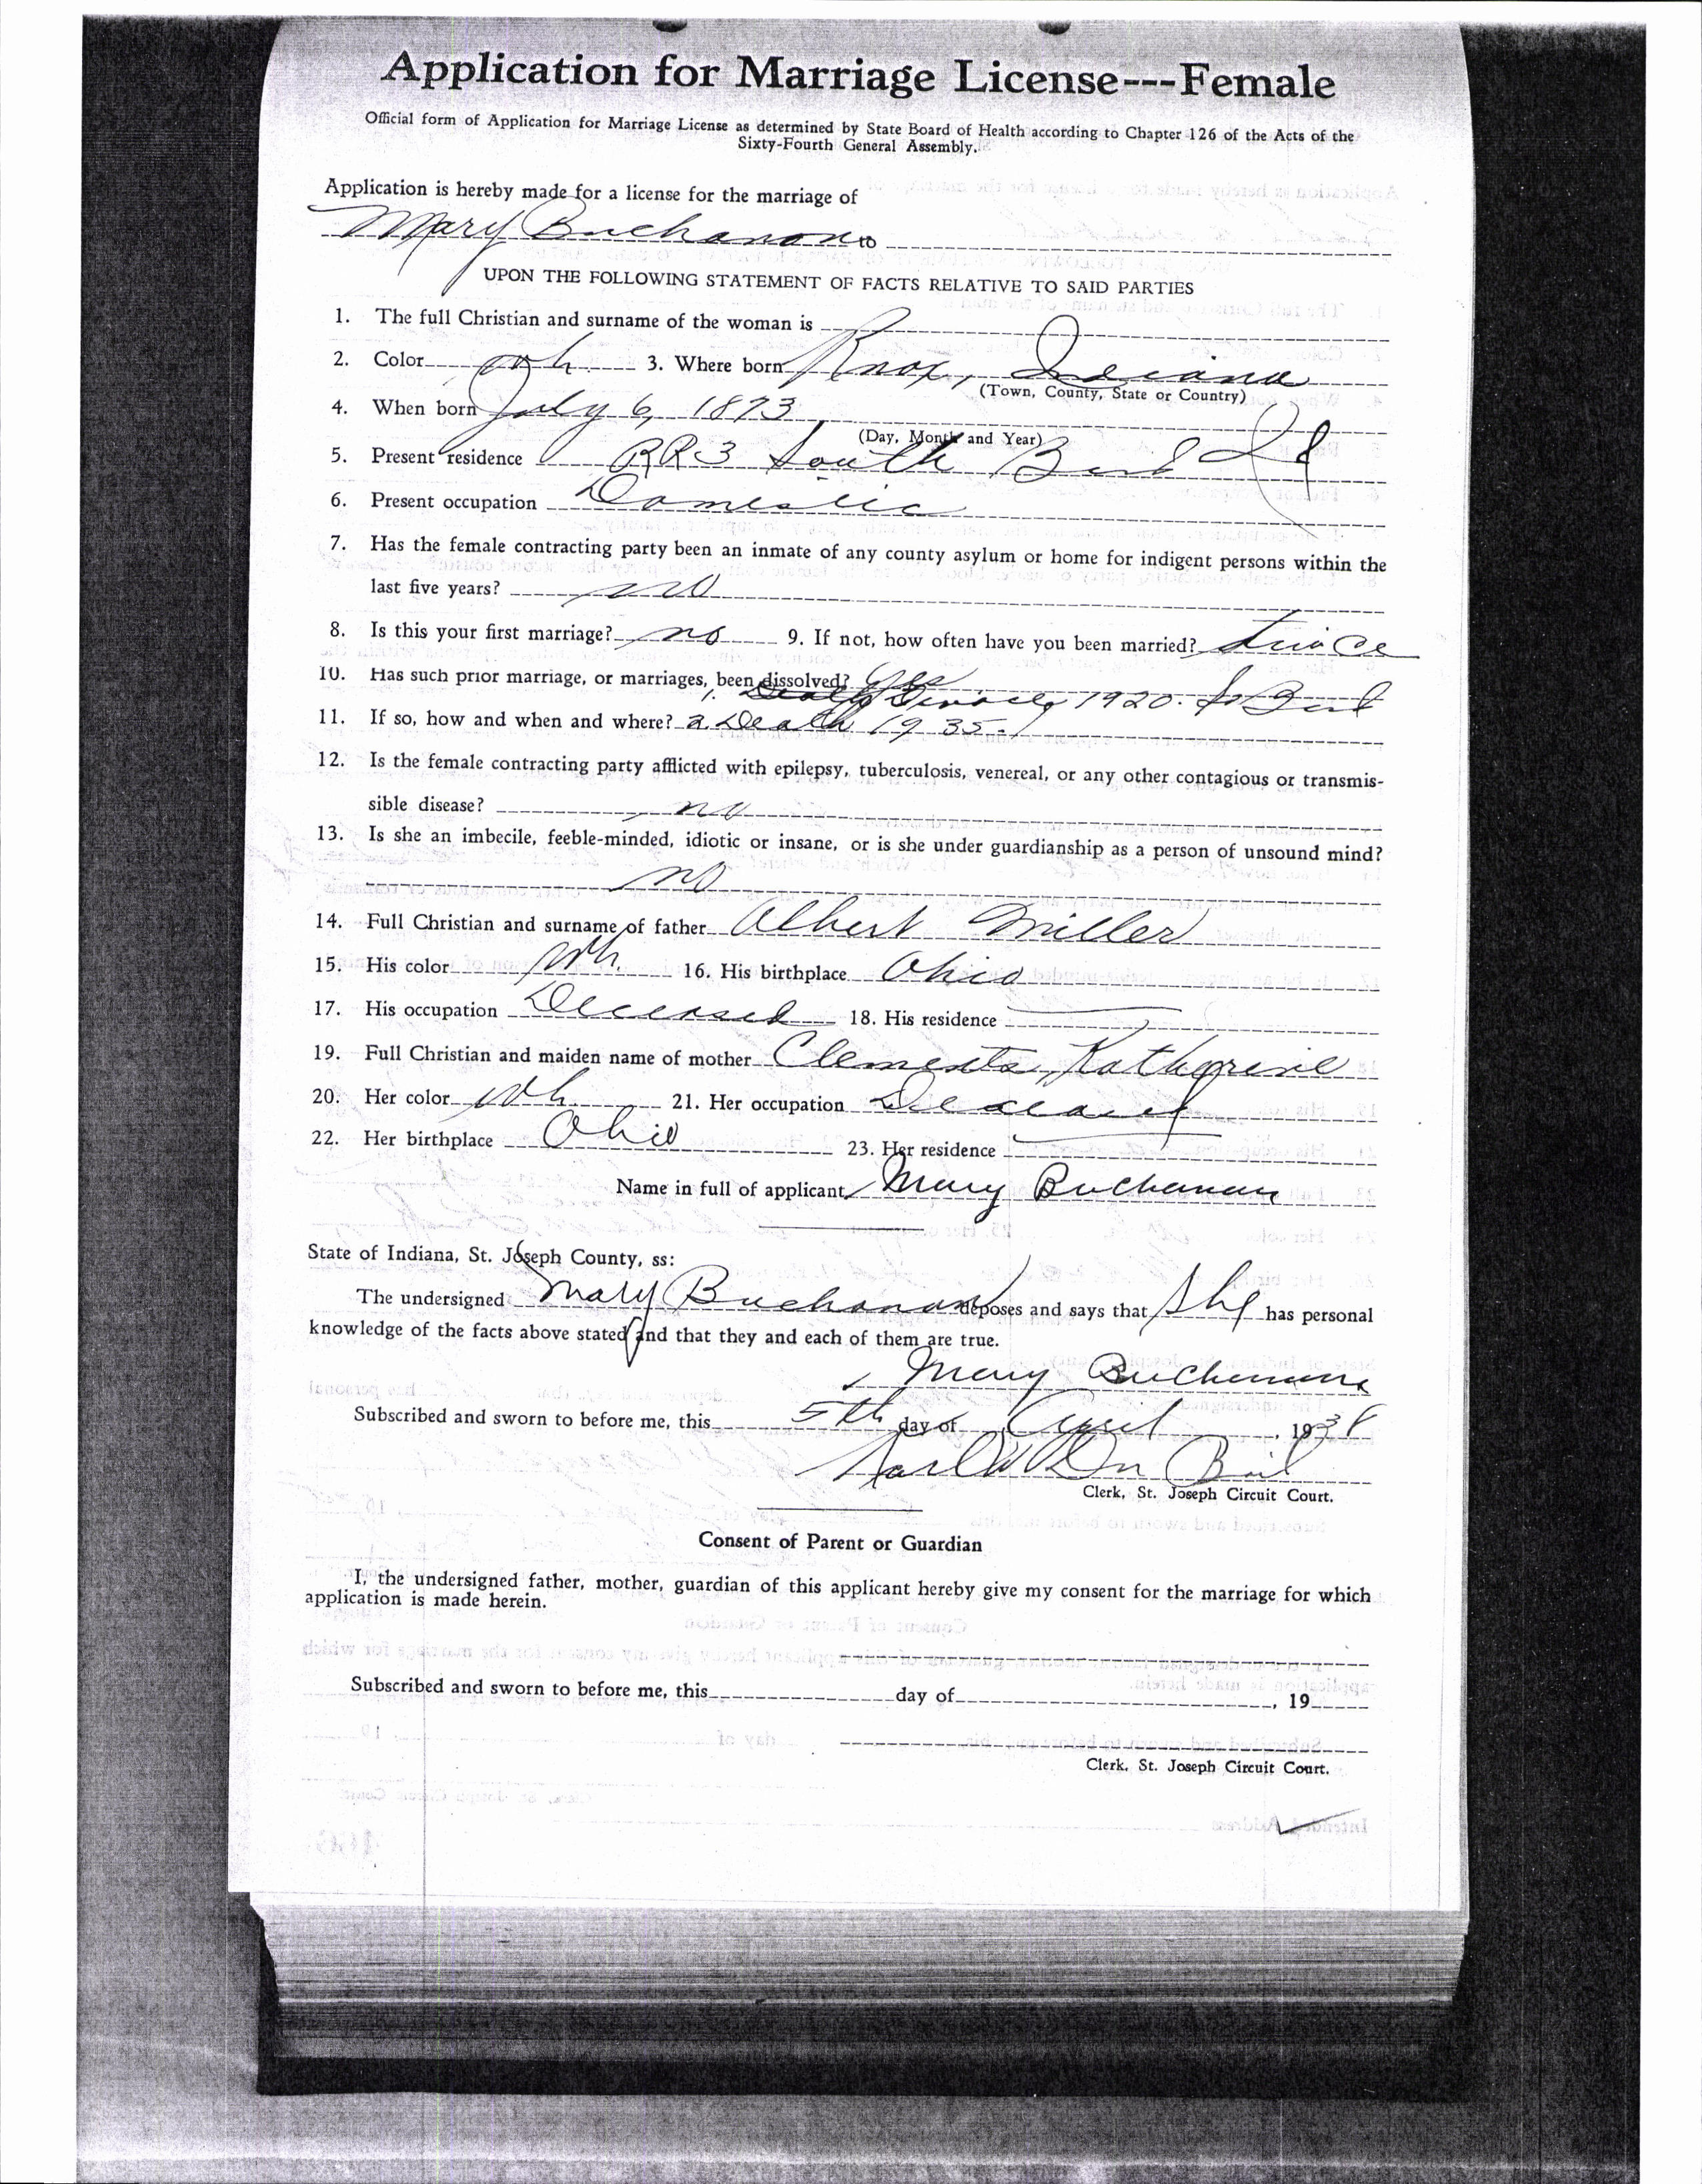 Application for Marriage License---Female
Official form of Application for Marriage License as determined by State Board of Health according to Chapter 126 of the Acts of the
Sixty-Fourth General Assembly.
Application is hereby made for a license for the marriage of
Mary Buchanan to
UPON THE FOLLOWING STATEMENT OF FACTS RELATIVE TO SAID PARTIES
1. The full Christian and surname of the woman is
2. Color wh. 3. Where born Knox, Indiana
(Town, County, State or Country)
4. When born July 6, 1873
(Day, Month and Year)
5. Present residence RR3 South Bend Ind
6. Present occupation Domestic
7. Has the female contracting party been an inmate of any county asylum or home for indigent persons within the
last five years? no
8. Is this your first marriage? no 9. If not, how often have you been married? twice
10. Has such prior marriage, or marriages, been dissolved? Yes
1. Death Divorce, 1920. So Bend
11. If so, how and when and where? 2. Death 1935.
12. Is the female contracting party afflicted with epilepsy, tuberculosis, venereal, or any other contagious or transmis-
sible disease? no
13. Is she an imbecile, feeble-minded, idiotic or insane, or is she under guardianship as a person of unsound mind?
no
14. Full Christian and surname of father Albert Miller
15. His color wh. 16. His birthplace Ohio
17. His occupation Deceased 18. His residence
19. Full Christian and maiden name of mother Clements, Katherine
20. Her color wh. 21. Her occupation Deceased
22. Her birthplace Ohio 23. Her residence
Name in full of applicant Mary Buchanan
State of Indiana, St. Joseph County, ss:
The undersigned Mary Buchanan deposes and says that she has personal
knowledge of the facts above stated and that they and each of them are true.
Mary Buchanan
Subscribed and sworn to before me, this 5th day of April, 1938
Clerk, St. Joseph Circuit Court.
Consent of Parent or Guardian
I, the undersigned father, mother, guardian of this applicant hereby give my consent for the marriage for which
application is made herein.
Subscribed and sworn to before me, this day of , 19
Clerk, St. Joseph Circuit Court.